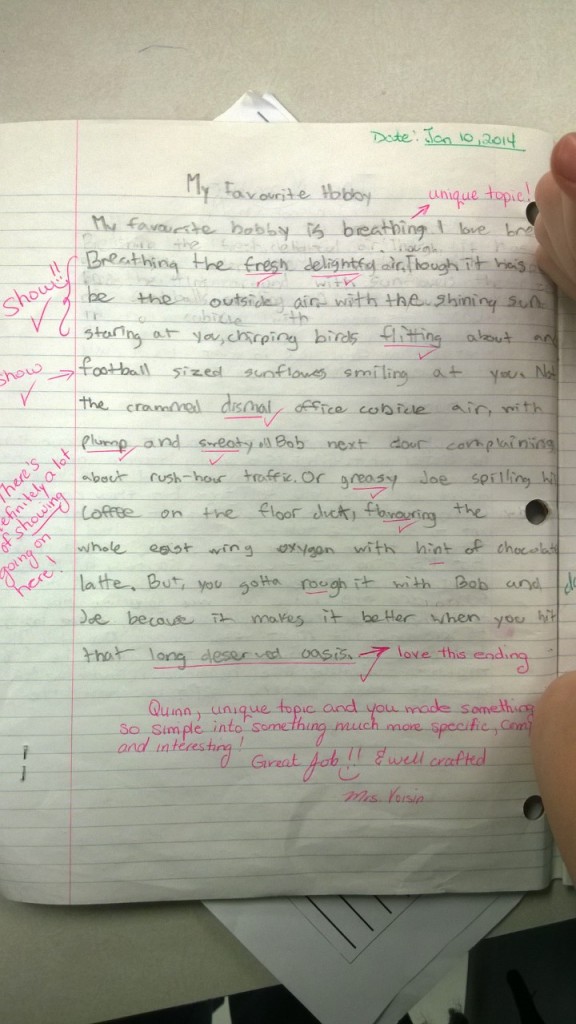 Date: Jan 10, 2014
My Favourite Hobby
unique topic!
My favourite hobby is breathing. I love bre
Breathing the fresh delightful air. Though it has
Show!!
be the outside air with the shining sun
staring at you, chirping birds flitting about an
show
football sized sunflowes smiling at you. Not
the crammed dismal office cubicle air, with
plump and sweaty ol Bob next dour complaining
There's definitely a lot of showing going on here!
about rush-hour traffic. Or greasy Joe spilling hi
coffee on the floor duct, flavouring the
whole east wing oxygen with hint of chocolate
latte. But, you gotta rough it with Bob and
Joe because it makes it better when you hit
that long deserved oasis.
love this ending
Quinn, unique topic and you made something
so simple into something much more specific,
and interesting!
Great Job!! & well crafted
Mrs. Voisin